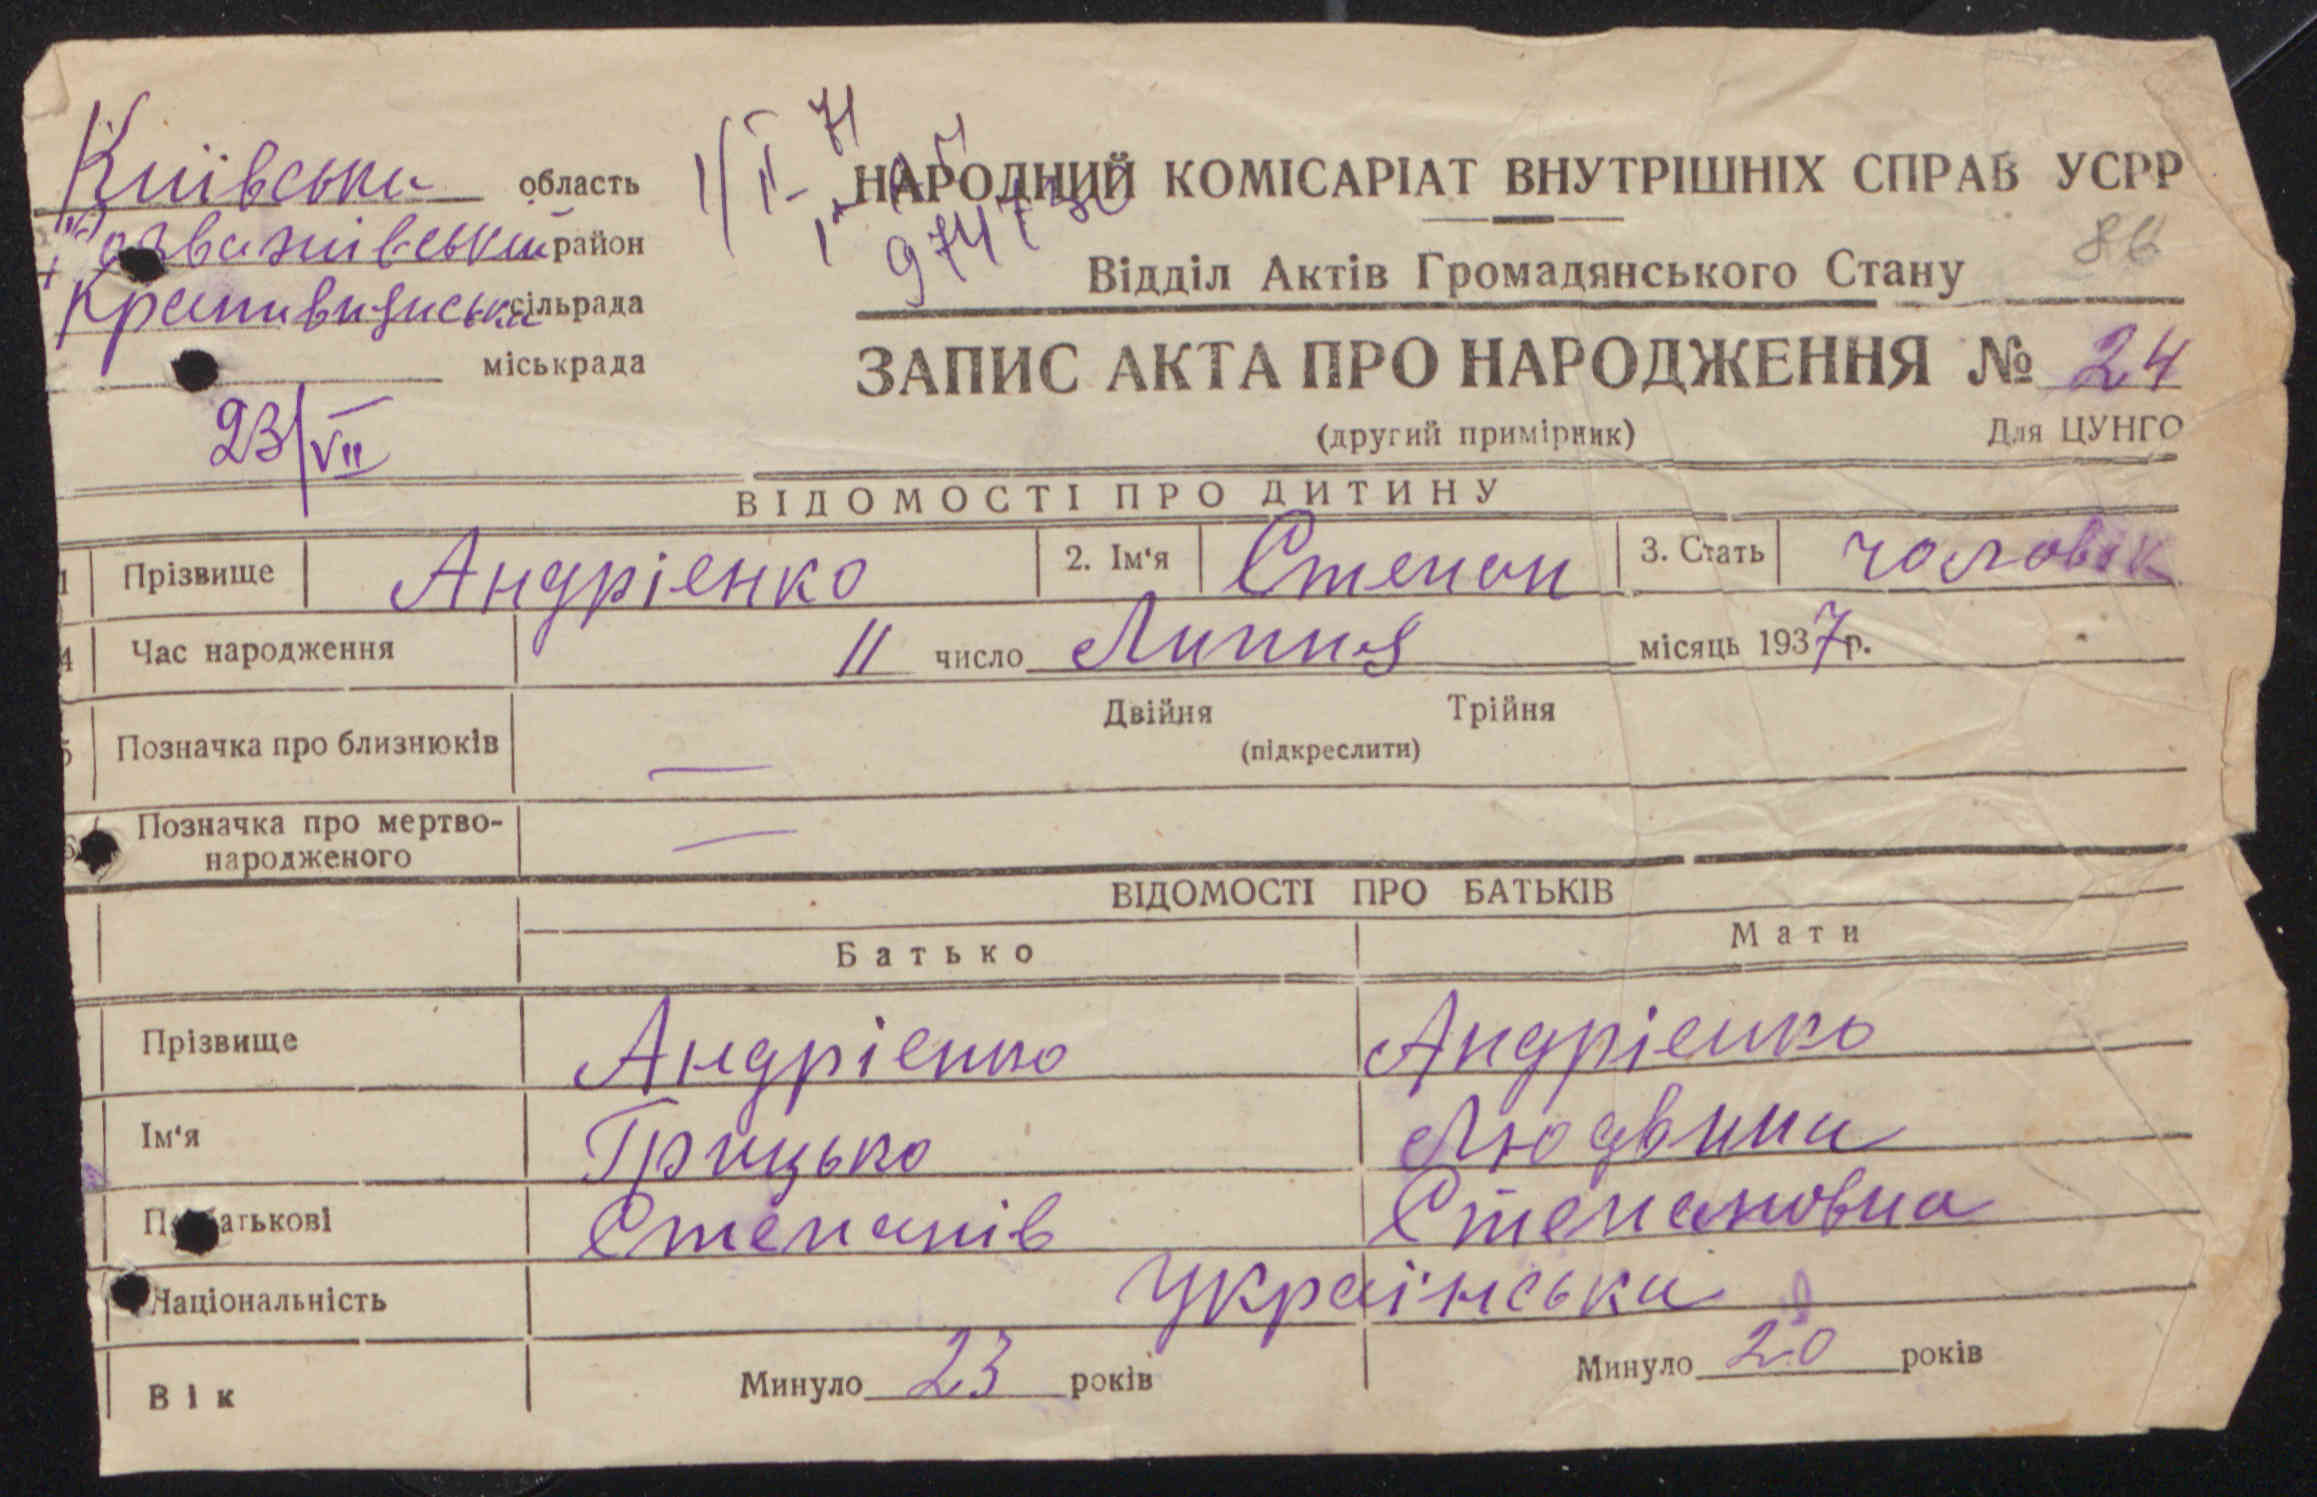 Київська область
район
Крапивнянська сільрада
міськрада
23/VII
НАРОДНИЙ КОМІСАРІАТ ВНУТРІШНІХ СПРАВ УСРР
86
Відділ Актів Громадянського Стану
ЗАПИС АКТА ПРО НАРОДЖЕННЯ № 24
(другий примірник) Для ЦУНГО
ВІДОМОСТІ ПРО ДИТИНУ
1 Прізвище Андрієнко 2. Ім'я Степан 3. Стать чоловік
4 Час народження 11 число Липня місяць 1937 р.
5 Позначка про близнюків — Двійня Трійня
(підкреслити)
6 Позначка про мертво-
народженого —
ВІДОМОСТІ ПРО БАТЬКІВ
Батько Мати
Прізвище Андрієнко Андрієнко
Ім'я Грицько Людвина
П атькові Степанів Степановна
Національність Українська
Вік Минуло 23 років Минуло 20 років